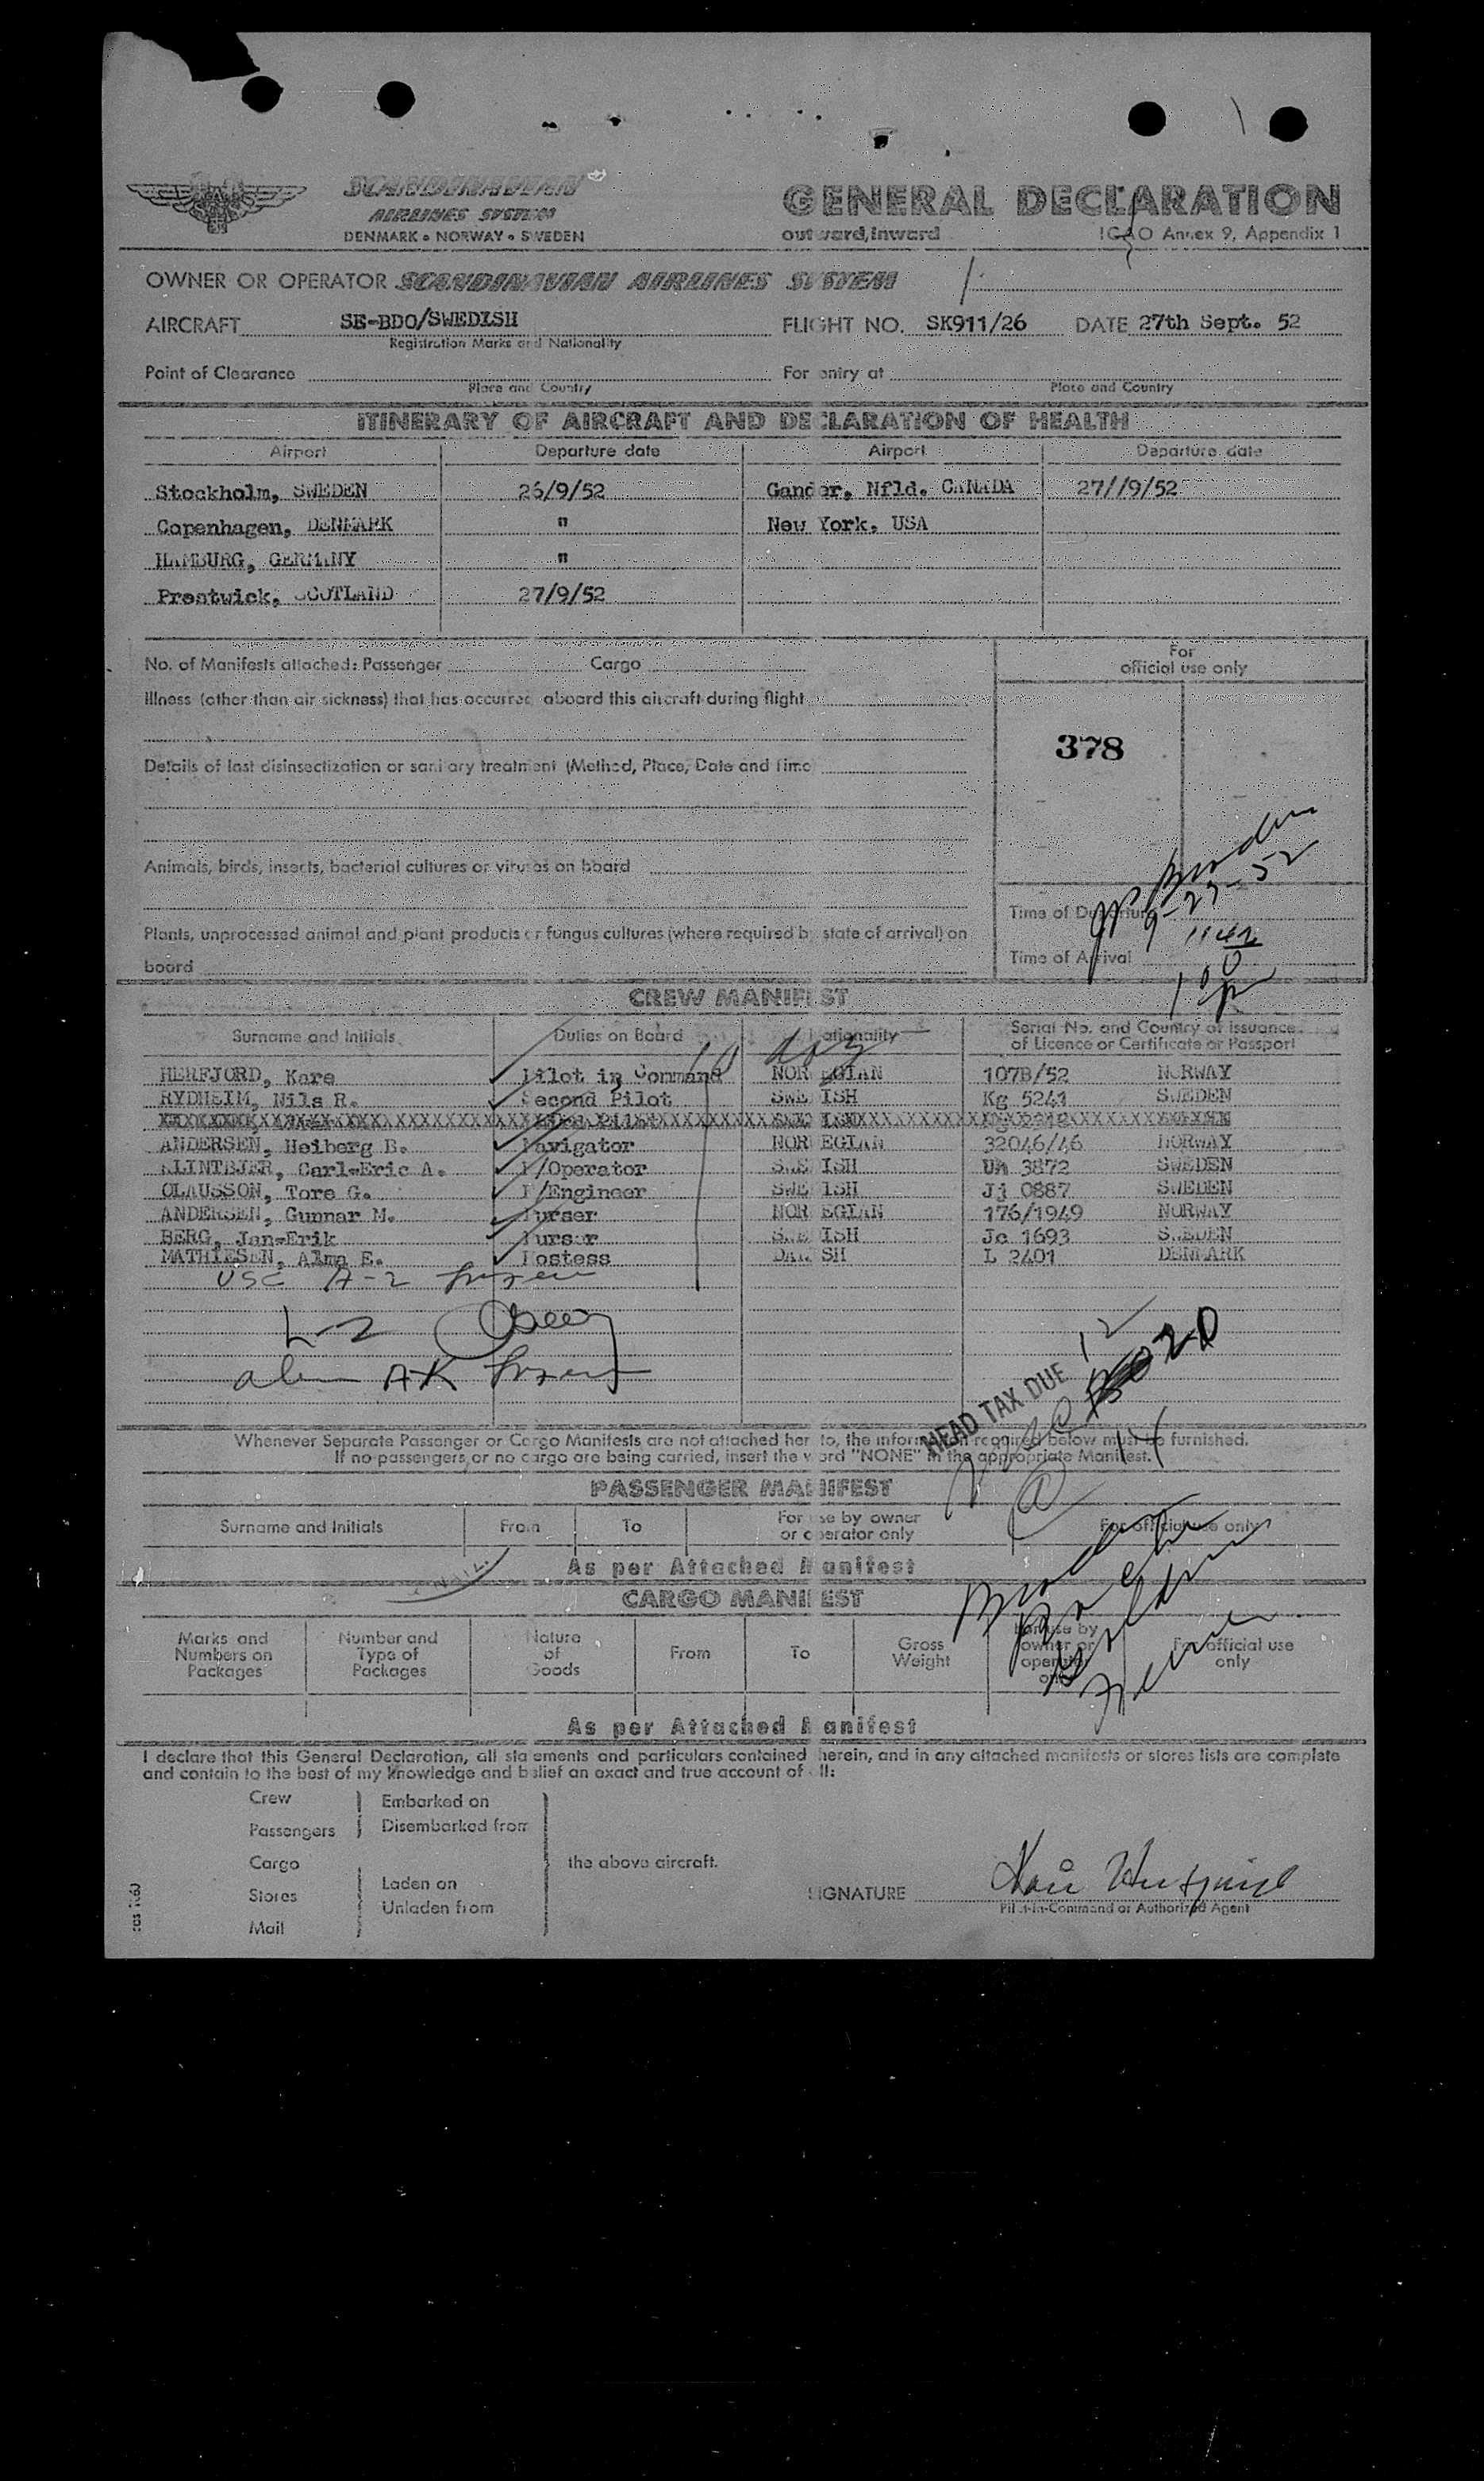 SCANDINAVIAN
AIRLINES SYSTEM
DENMARK • NORWAY • SWEDEN
GENERAL DECLARATION
outward, inward
ICAO Annex 9, Appendix 1
OWNER OR OPERATOR SCANDINAVIAN AIRLINES SYSTEM
AIRCRAFT SE-BDO/SWEDISH FLIGHT NO. SK911/26 DATE 27th Sept. 52
Registration Marks and Nationality
Point of Clearance For entry at
Place and Country Place and Country
ITINERARY OF AIRCRAFT AND DECLARATION OF HEALTH
Airport Departure date Airport Departure date
Stockholm, SWEDEN 26/9/52 Gander, Nfld. CANADA 27//9/52
Copenhagen, DENMARK " New York, USA
HAMBURG, GERMANY "
Prestwick, SCOTLAND 27/9/52
No. of Manifests attached: Passenger Cargo
For
official use only
Illness (other than air sickness) that has occurred aboard this aircraft during flight
378
Details of last disinsectization or sanitary treatment (Method, Place, Date and Time)
Animals, birds, insects, bacterial cultures or viruses on board
9-27-52
Time of Departure
Plants, unprocessed animal and plant products or fungus cultures (where required by state of arrival) on
board
Time of Arrival
CREW MANIFEST
Surname and Initials Duties on Board Nationality Serial No. and Country of Issuance
of Licence or Certificate or Passport
HERFJORD, Kare Pilot in Command NORWEGIAN 107B/52 NORWAY
RYDHEIM, Nils R. Second Pilot SWEDISH Kg 5241 SWEDEN
ANDERSEN, Heiberg B. Navigator NORWEGIAN 32046/46 NORWAY
KLINTBJER, Carl-Eric A. R/Operator SWEDISH Uh 3872 SWEDEN
OLAUSSON, Tore G. F/Engineer SWEDISH Jj 0887 SWEDEN
ANDERSEN, Gunnar M. Purser NORWEGIAN 176/1949 NORWAY
BERG, Jan-Erik Purser SWEDISH Jc 1693 SWEDEN
MATHIESEN, Alma E. Hostess DANISH L 2401 DENMARK
USC A-2
L-2
A-K
HEAD TAX DUE
Whenever Separate Passenger or Cargo Manifests are not attached hereto, the information required below must be furnished.
If no passengers or no cargo are being carried, insert the word "NONE" in the appropriate Manifest.
PASSENGER MANIFEST
Surname and Initials From To For use by owner
or operator only For official use only
As per Attached Manifest
CARGO MANIFEST
Marks and
Numbers on
Packages
Number and
Type of
Packages
Nature
of
Goods
From
To
Gross
Weight
For use by
owner or
operator
only
For official use
only
As per Attached Manifest
I declare that this General Declaration, all statements and particulars contained herein, and in any attached manifests or stores lists are complete
and contain to the best of my knowledge and belief an exact and true account of all:
Crew
Passengers
Embarked on
Disembarked from
Cargo
Stores
Mail
Laden on
Unladen from
the above aircraft.
SIGNATURE
Pilot-in-Command or Authorized Agent